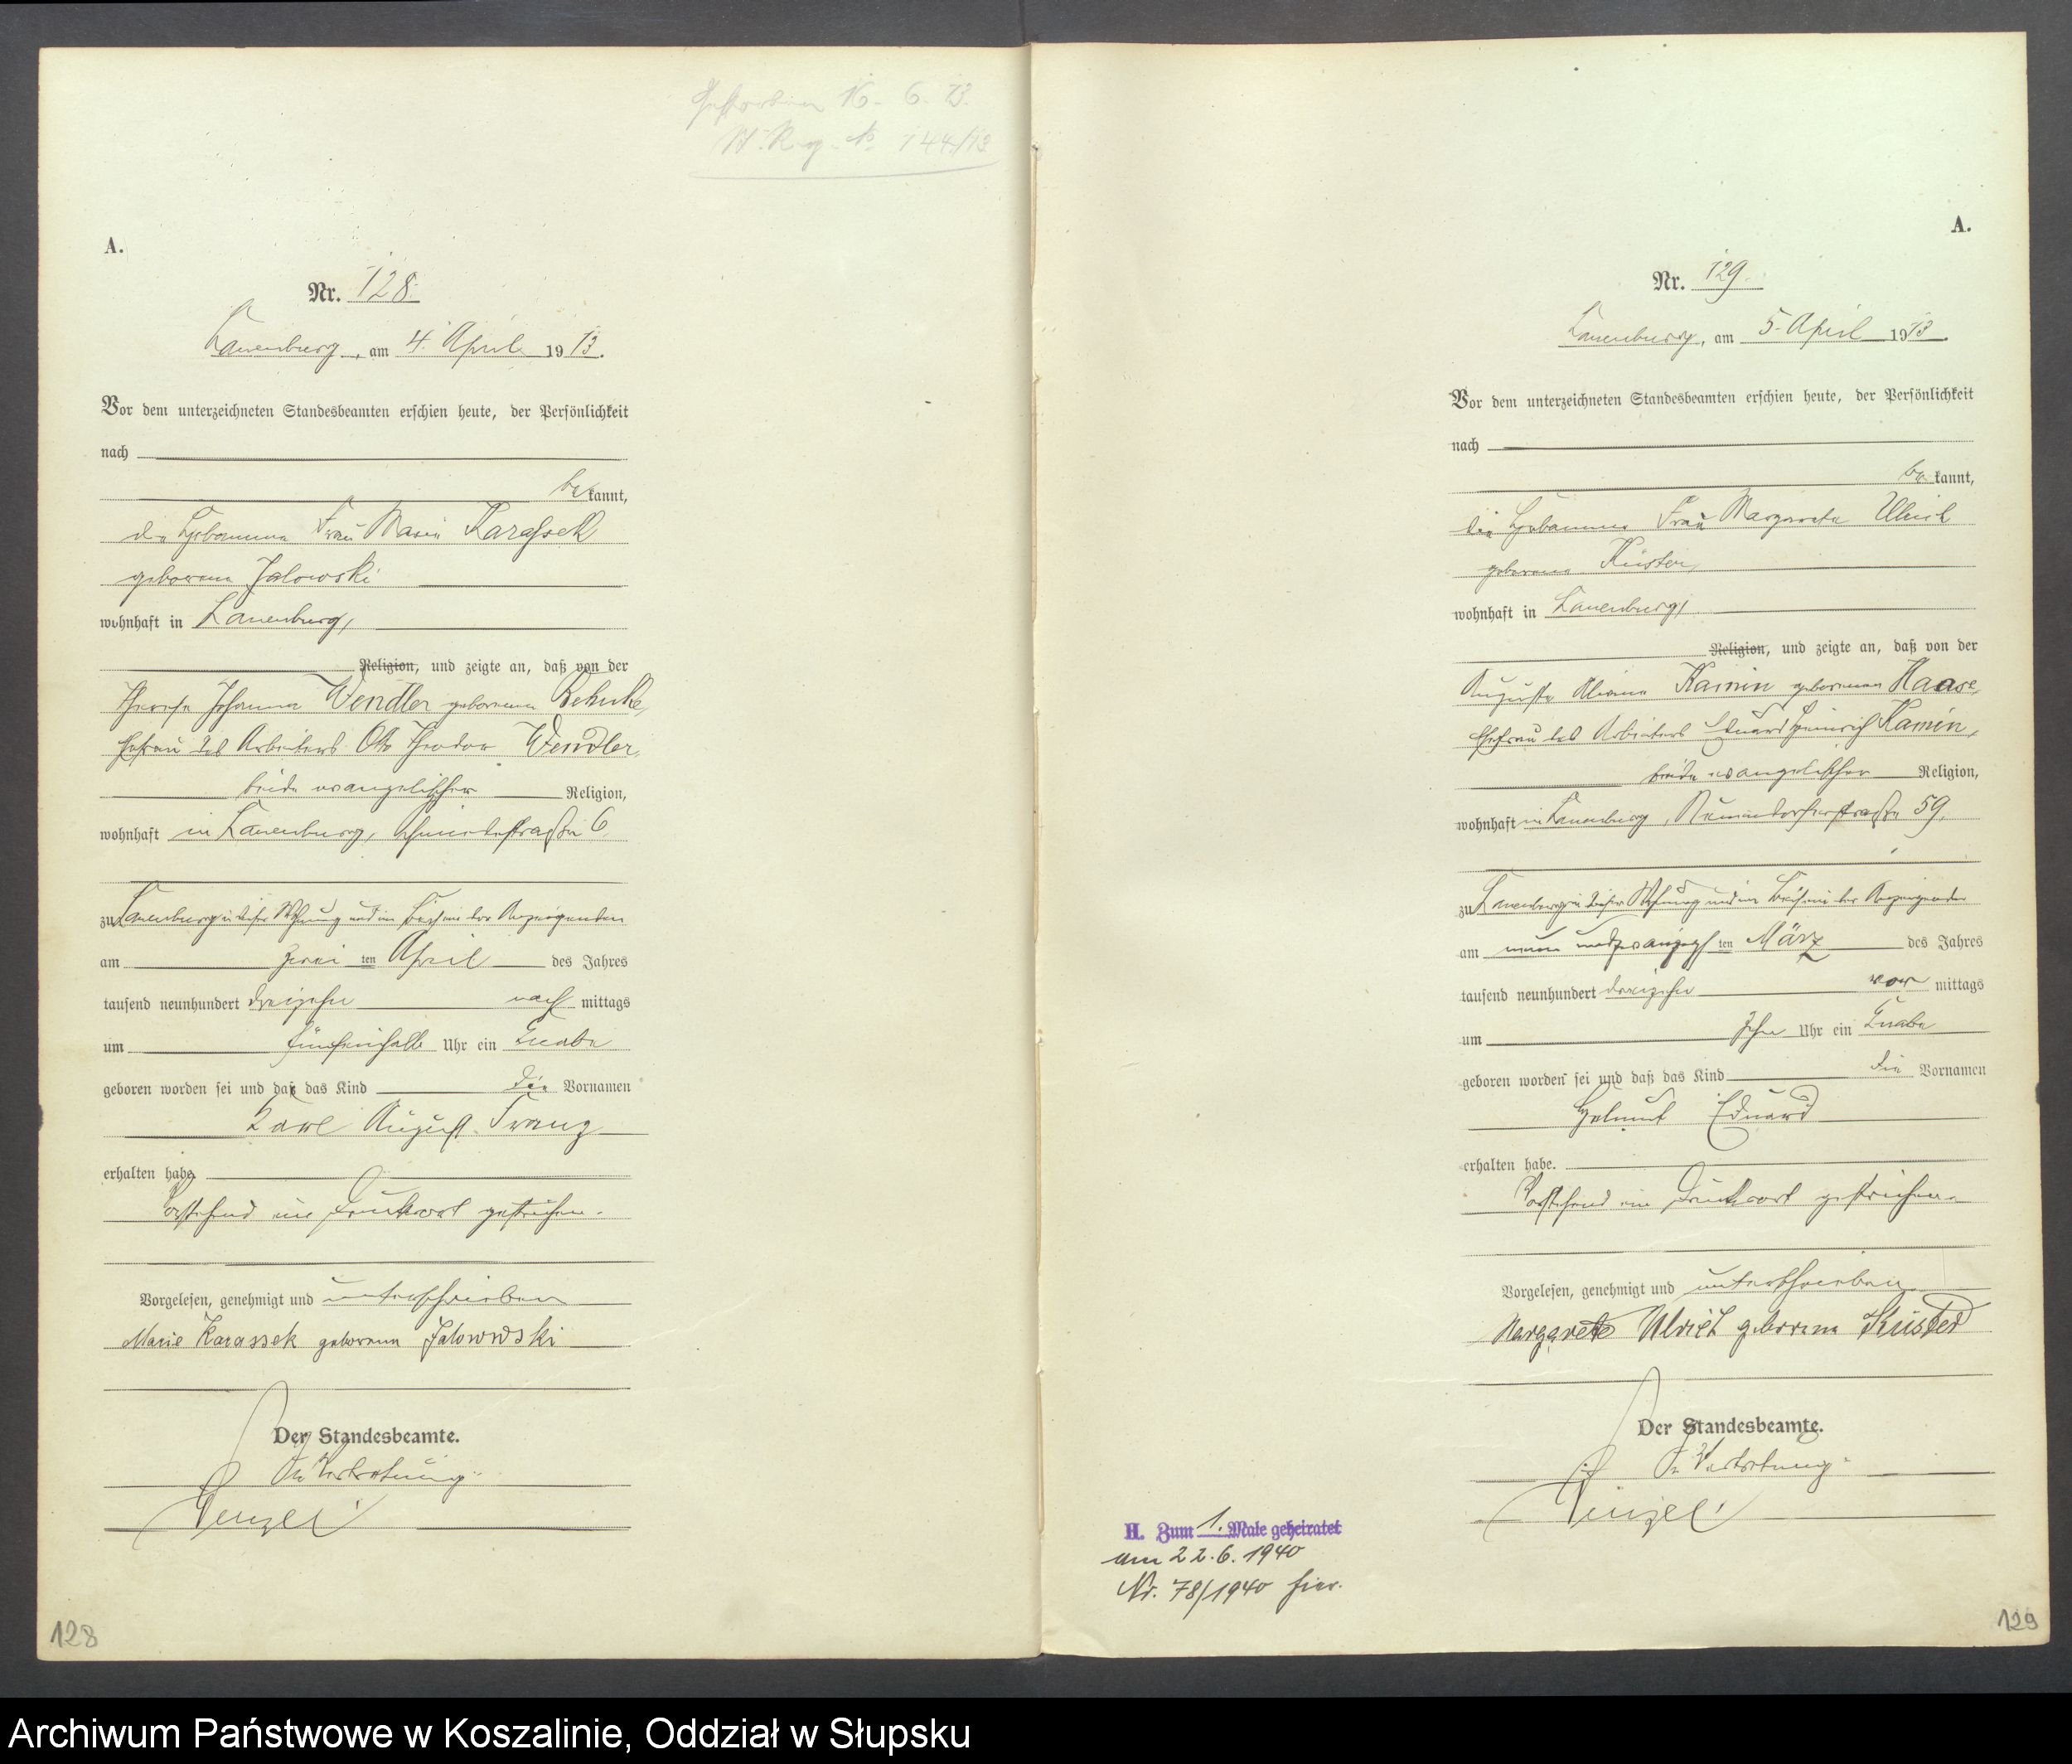 Gestorben 16. 6. 13.
St. Reg. No 144/13
A.
Nr. 128.
Lauenburg, am 4. April 1913.
Vor dem unterzeichneten Standesbeamten erschien heute, der Persönlichkeit
nach
bekannt,
die Hebamme Frau Marie Karassek
geborene Jalowski
wohnhaft in Lauenburg,
Religion, und zeigte an, daß von der
Therese Johanna Wendler geborenen Behnke,
Ehefrau des Arbeiters Otto Theodor Wendler,
beide evangelischer Religion,
wohnhaft in Lauenburg, 6,
zu Lauenburg in dieser Wohnung und im Beisein der Anzeigenden
am zweiten April des Jahres
tausend neunhundert dreizehn nachmittags
um fünfeinhalb Uhr ein Knabe
geboren worden sei und daß das Kind die Vornamen
Karl August Franz
erhalten habe
Vorstehend ein Druckwort gestrichen.
Vorgelesen, genehmigt und unterschrieben
Marie Karassek geborene Jalowwski
Der Standesbeamte.
In Vertretung.
128
A.
Nr. 129.
Lauenburg, am 5. April 1913.
Vor dem unterzeichneten Standesbeamten erschien heute, der Persönlichkeit
nach
bekannt,
die Hebamme Frau Margarete Ulrich
geborene Küster,
wohnhaft in Lauenburg,
Religion, und zeigte an, daß von der
Auguste Kamin geborenen Haase,
Ehefrau des Arbeiters Eduard Heinrich Kamin,
beide evangelischer Religion,
wohnhaft in Lauenburg, 59,
zu Lauenburg in dieser Wohnung und im Beisein der Anzeigenden
am neunundzwanzigsten März des Jahres
tausend neunhundert dreizehn vormittags
um zehn Uhr ein Knabe
geboren worden sei und daß das Kind die Vornamen
Helmut Eduard
erhalten habe.
Vorstehend ein Druckwort gestrichen.
Vorgelesen, genehmigt und unterschrieben
Margarete Ulrich geborene Küster
Der Standesbeamte.
In Vertretung.
H. Zum 1. Male geheiratet
am 22.6.1940
Nr. 78/1940 hier.
129
Archiwum Państwowe w Koszalinie, Oddział w Słupsku